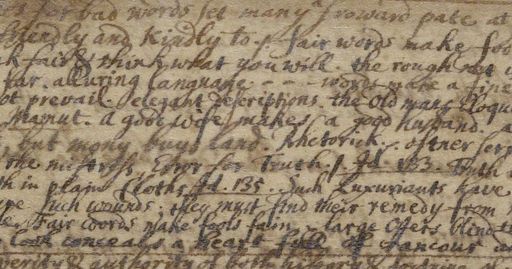 for bad words set many a froward pate at
friendly and kindly to. fair words make foo
k fair & think what you will the rough
alluring language words make a fine
ot prevail. elegant descriptions. the old mans Eloque
Mamut. a good wife makes a good husband. a
but mony buys land. Rhetorick oftner ser
the mistress, Error for Truth, fol. 133. Truth
th in plain Cloths. fol. 135. Such Luxuriants have
such wounds, they must find their remedy from
Fair words make fools fain. large offers blind
look conceals a heart full of rancour
& authority of both